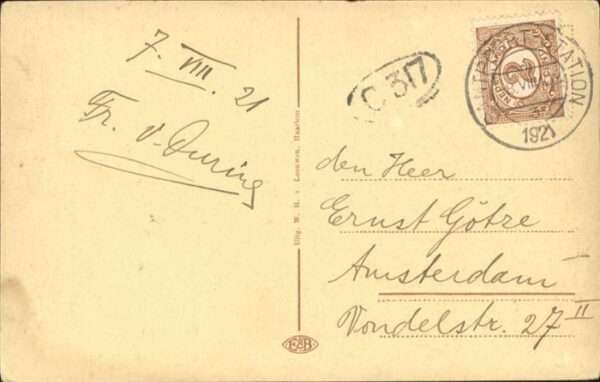 7. VIII. 21
Fr. v. During
Uitg. W. H. v Leeuwen, Haarlem
C 317
2
STATION
1921
den Heer
Ernst Götze
Amsterdam
Vondelstr. 27 II